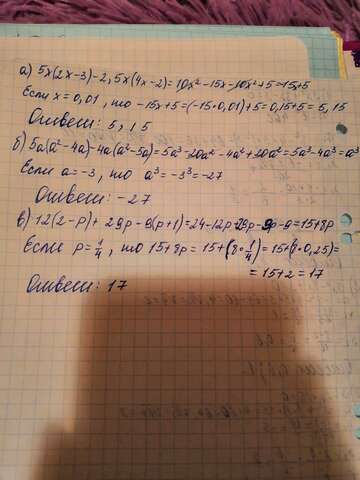 а) 5x(2x-3)-2,5x(4x-2)=10x²-15x-10x²+5=15x+5
Если x=0,01, то -15x+5=(-15·0,01)+5=0,15+5=5,15
Ответ: 5,15
б) 5a(a²-4a)-4a(a²-5a)=5a³-20a²-4a³+20a²=5a³-4a³=a³
Если a=-3, то a³=-3³=-27
Ответ: -27
в) 12(2-p)+29p-9(p+1)=24-12p+29p-9p-9=15+8p
Если p=1/4, то 15+8p=15+(8·1/4)=15+(8·0,25)=
=15+2=17
Ответ: 17